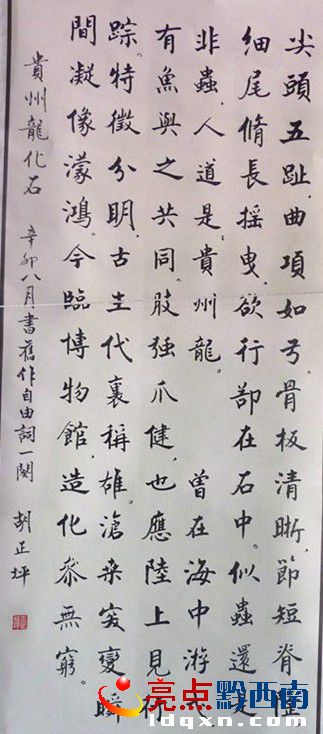 尖頭五趾,曲項如弓。骨板清晰,節短脊椎
細尾脩長摇曳,欲行却在石中。似蟲還
非蟲,人道是,貴州龍。 曾在海中游
有魚與之共同。肢強爪健,也應陸上見
踪。特徵分明,古生代裏稱雄。滄桑突變,瞬
間凝像濛鴻。今臨博物館,造化參無窮。
貴州龍化石 辛卯八月書舊作自由詞一闋 胡正坪
亮点黔西南
ldqxn.com